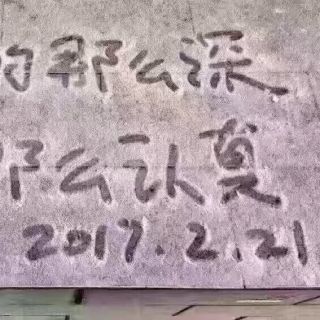 的那么深
那么认真
2017.2.21